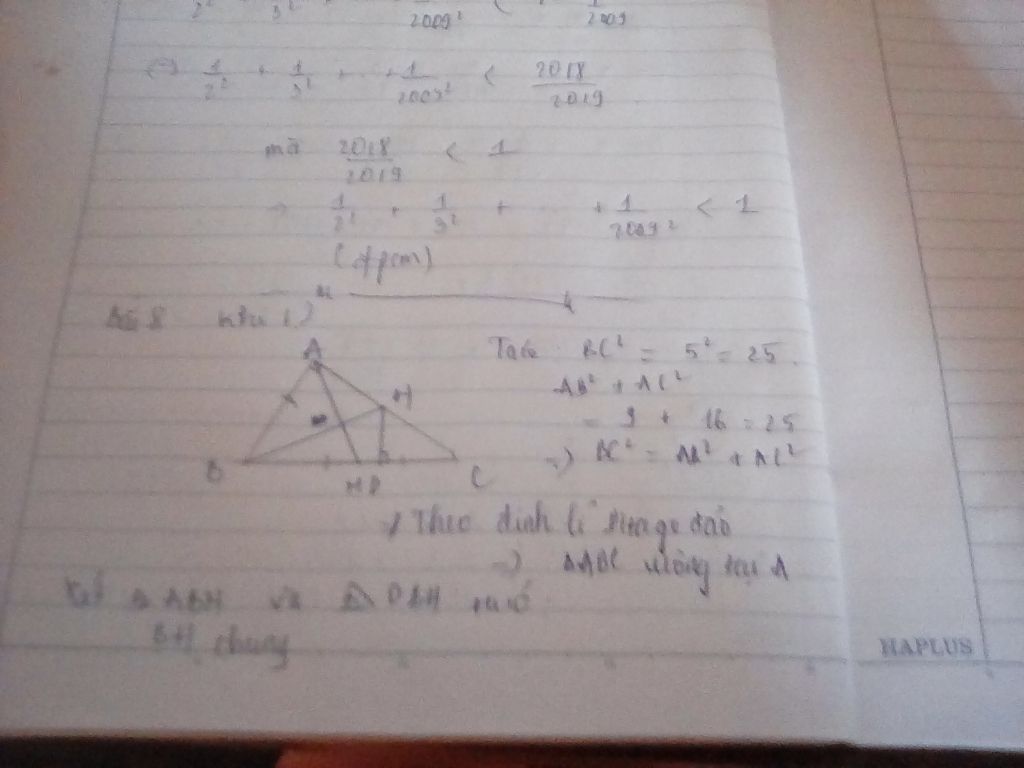 1/2² + 1/3² + 1/2009² < 1/2009
(=) 1/2² + 1/3² + .. + 1/2009² < 2018/2019
mà 2018/2019 < 1
→ 1/2² + 1/3² + + 1/2009² < 1
(đpcm)
A
H
B
M D
C
Ta có BC² = 5² = 25.
AB² + AC²
= 9 + 16 = 25
=) BC² = AB² + AC²
Theo định lí đảo
=) ΔABC vuông tại A
Xét Δ ABH và Δ DBH ta có
BH chung
HAPLUS